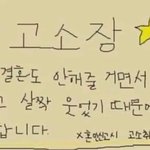 고소장
결혼도 안해줄 거면서
고 살짝 웃었기 때문에
합니다.
x혼인신고시 고소취